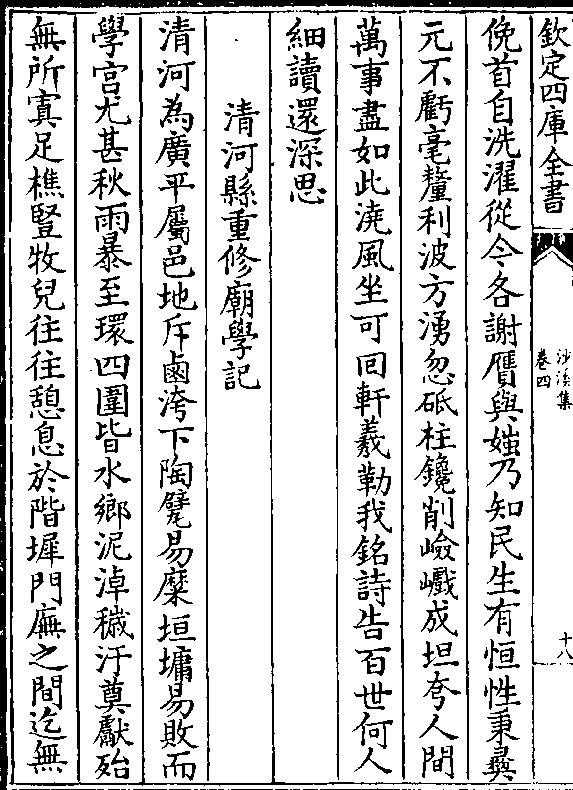 欽定四庫全書
沙溪集
卷四
十八
俛首自洗濯從今各謝贋與媸乃知民生有恒性秉彛
元不虧毫釐利波方湧忽砥柱鑱削嶮巇成坦夸人間
萬事盡如此澆風坐可回軒羲勒我銘詩告百世何人
細讀還深思
清河縣重修廟學記
清河為廣平屬邑地斥鹵洿下陶甓易糜垣墉易敗而
學宫尤甚秋雨暴至環四圍皆水鄉泥淖穢汙奠獻殆
無所寘足樵豎牧兒往往憩息於階墀門廡之間迄無